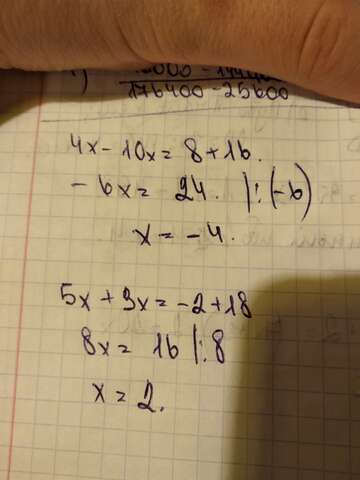 176400-25600
4x-10x=8+16.
-6x= 24. |:(-6)
x=-4.
5x+3x=-2+18
8x= 16 |:8
x=2.